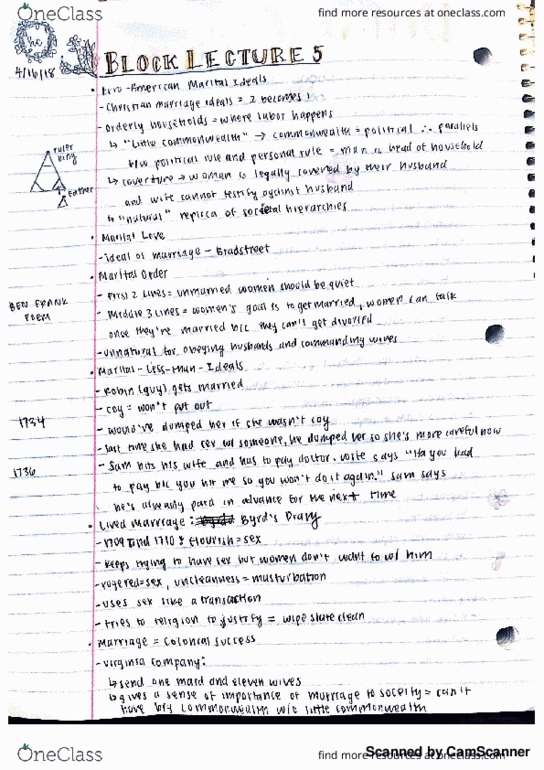 OneClass
find more resources at oneclass.com
4/16/18
BLOCK LECTURE 5
• Euro-American Marital Ideals
- Christian marriage ideals = 2 becomes 1
- orderly households = where labor happens
↳ "Little commonwealth" → commonwealth = political ∴ parallels
ruler
king
father
b/w political rule and personal rule = man is head of household
↳ coverture → woman is legally covered by their husband
and wife cannot testify against husband
↳ "natural" replica of societal hierarchies
• Marital Love
- ideal of marriage - Bradstreet
• Marital Order
BEN FRANK
POEM
- First 2 lines = unmarried women should be quiet
- Middle 3 lines = women's goal is to get married, women can talk
once they're married b/c they can't get divorced
- unnatural for obeying husbands and commanding wives
• Marital-Less-Than-Ideals
- Robin (guy) gets married
- coy = won't put out
1734
- would've dumped her if she wasn't coy
- last time she had sex w/ someone, he dumped her so she's more careful now
1736
- Sam hits his wife and has to pay doctor. Wife says "Ha you had
to pay b/c you hit me so you won't do it again." Sam says
he's already paid in advance for the next time
• Lived Marriage: Byrd's Diary
- 1709 and 1710: flourish = sex
- keeps trying to have sex but women don't want to w/ him
- rogered = sex, uncleanness = masturbation
- uses sex like a transaction
- tries to religion to justify = wipe slate clean
• Marriage = Colonial Success
- Virginia Company:
↳ send one maid and eleven wives
↳ gives a sense of importance of marriage to society = can't
have big commonwealth w/o little commonwealth
Scanned by CamScanner
OneClass
find more resources at oneclass.com